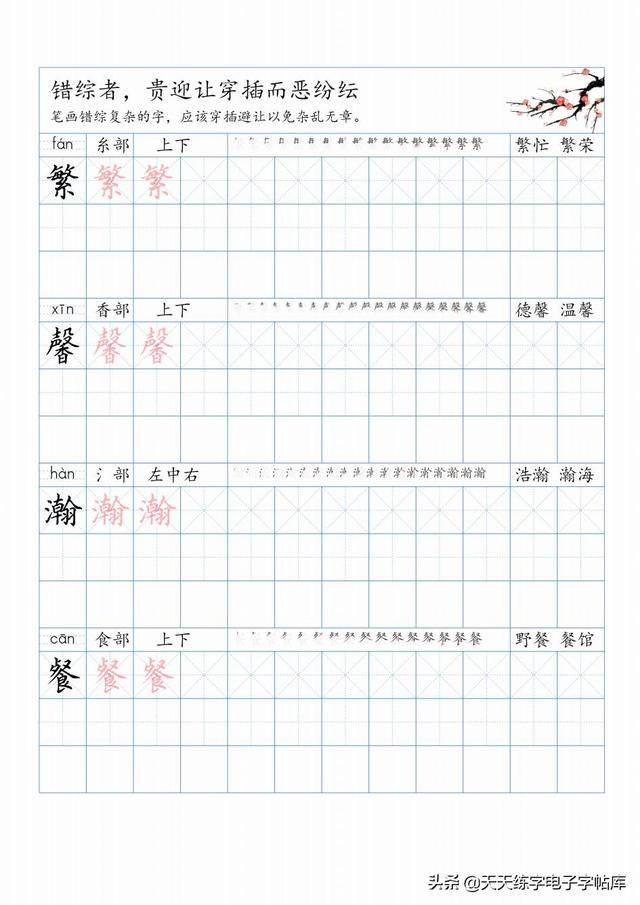 错综者，贵迎让穿插而恶纷纭
笔画错综复杂的字，应该穿插避让以免杂乱无章。
fán 糸部 上下 繁忙 繁荣
繁 繁 繁
xīn 香部 上下 德馨 温馨
馨 馨 馨
hàn 氵部 左中右 浩瀚 瀚海
瀚 瀚 瀚
cān 食部 上下 野餐 餐馆
餐 餐 餐
头条 @天天练字电子字帖库